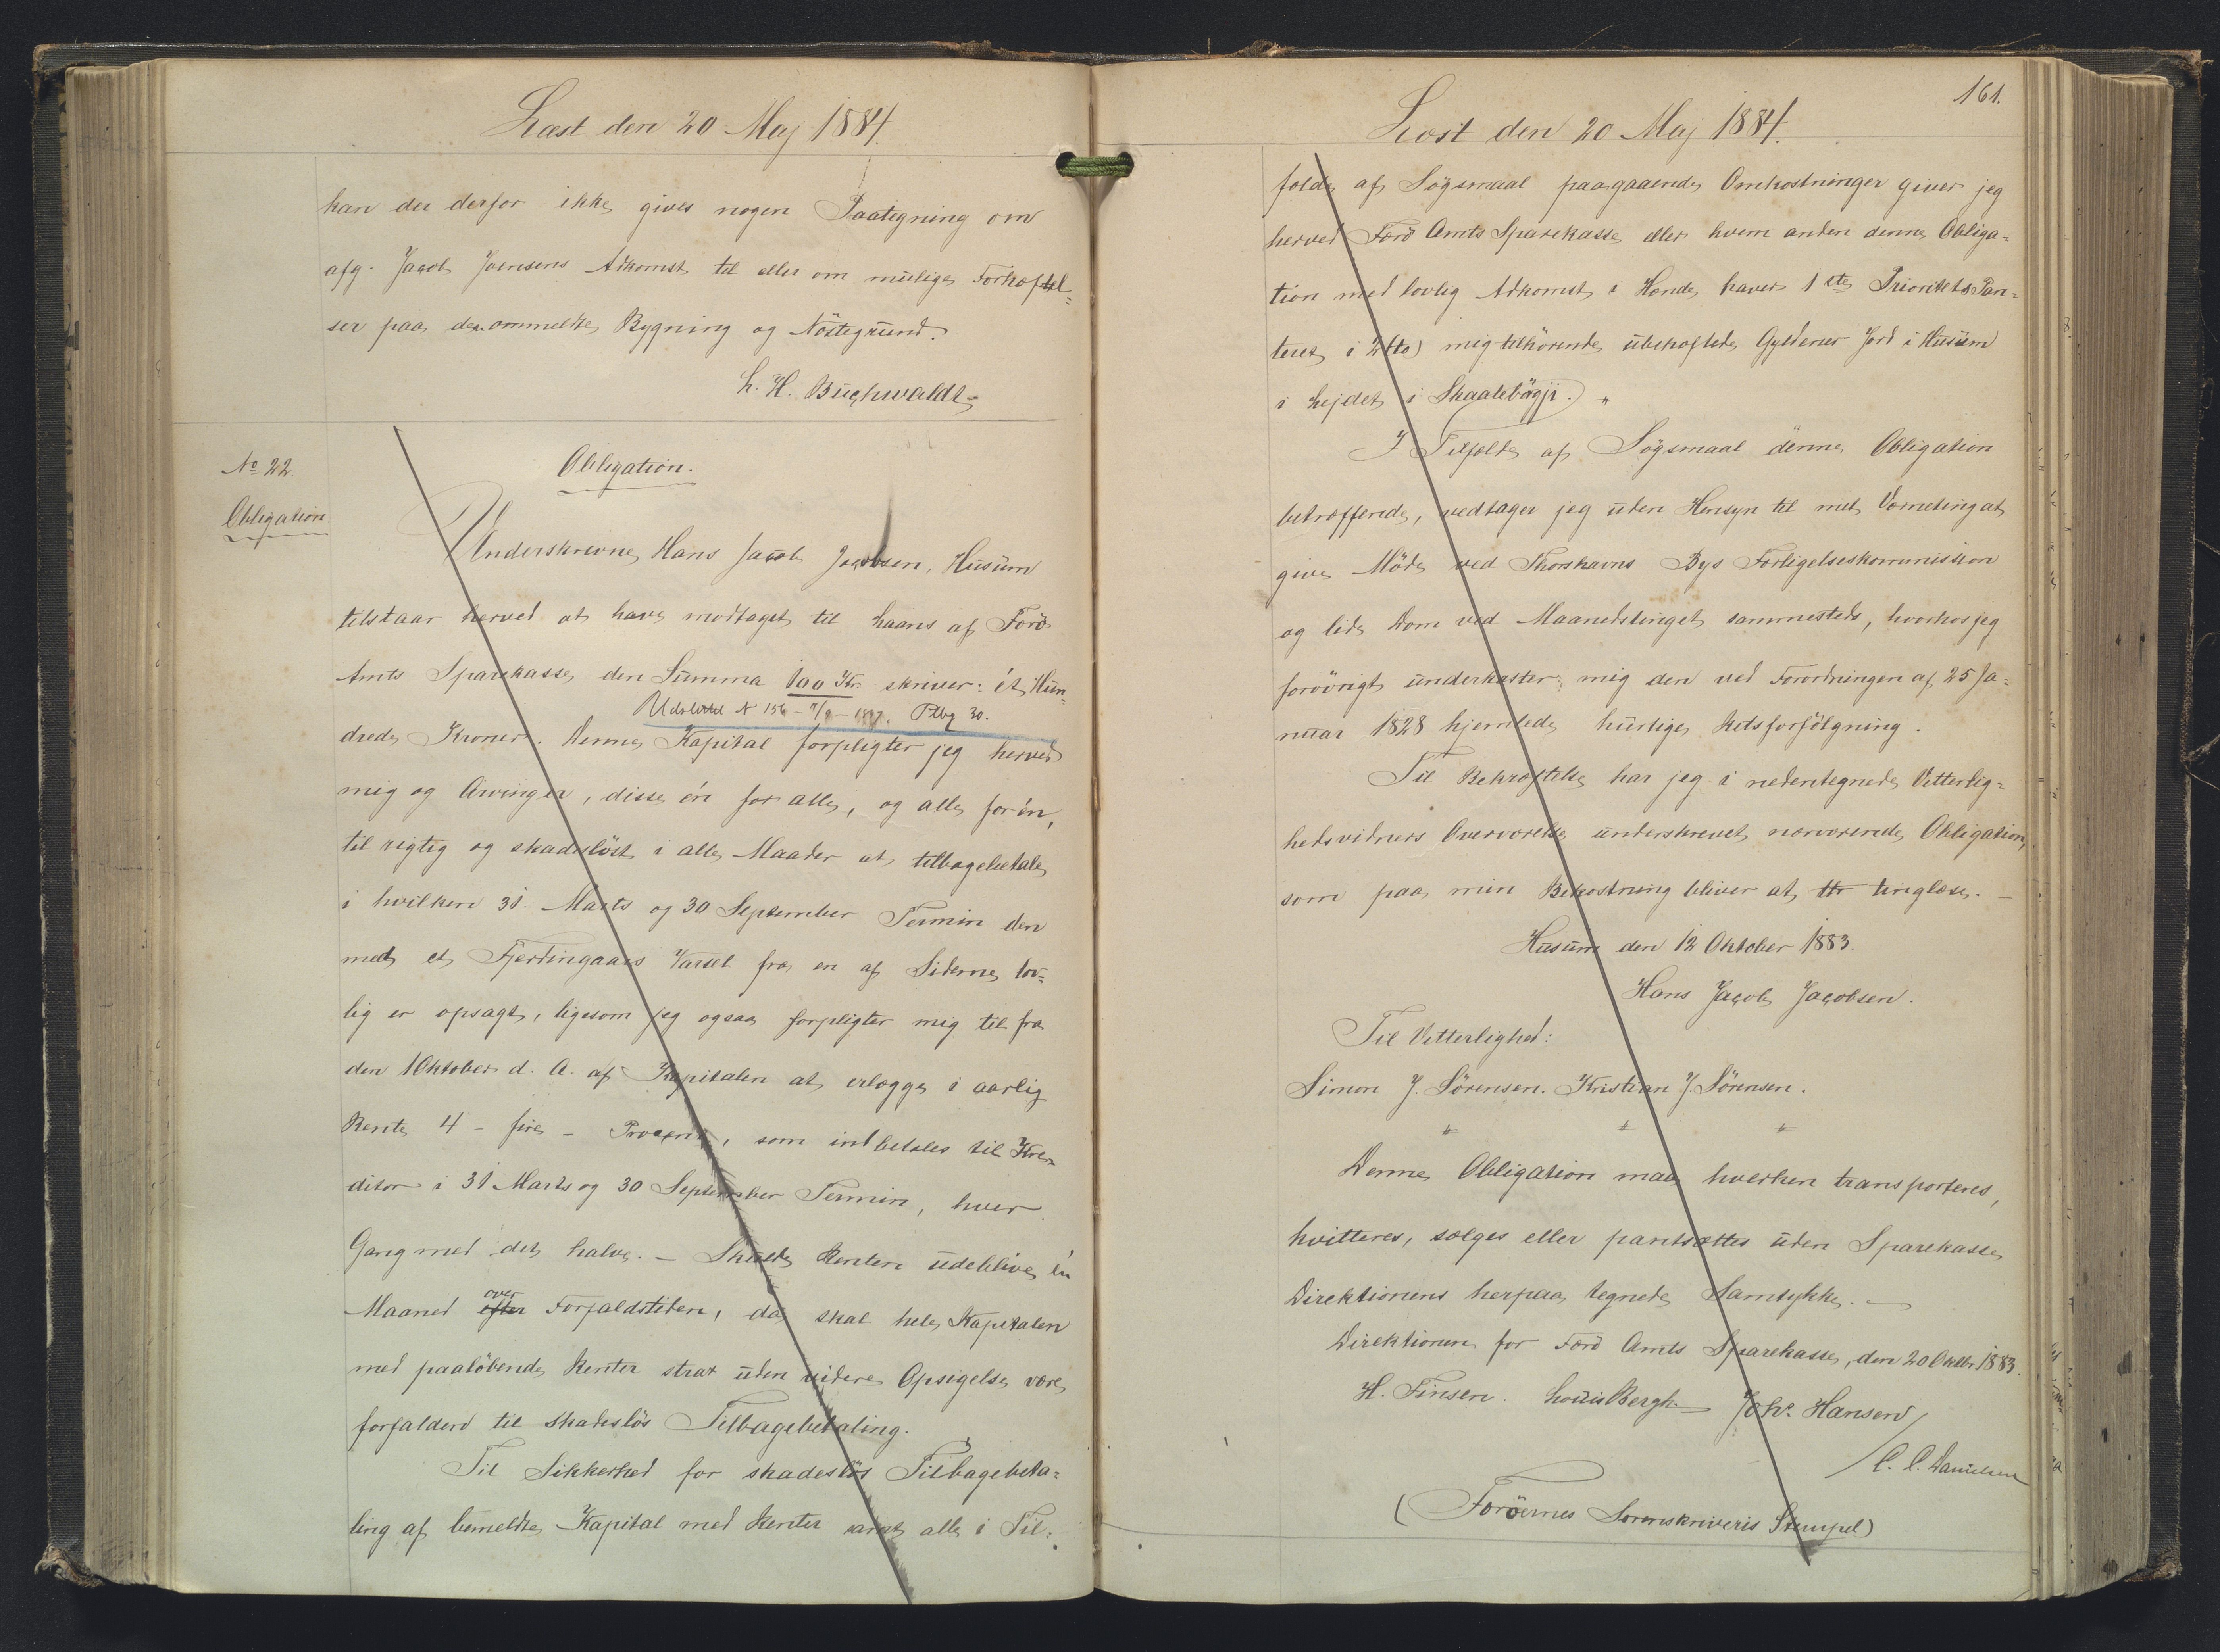 Læst den 20 Maj 1884.
kan der derfor ikke gives nogen Paategning om
afg. Jacob Joensens Adkomst til eller om mulige Forhæftel=
ser paa den ommeldte Bygning og Nöstegrund.
L. H. Buchwaldt
No 22.
Obligation.
Obligation.
Underskrevne Hans Jacob Jacobsen, Husum
tilstaar herved at have modtaget til Laans af Færö
Amts Sparekasse den Summa 100 Kr. skriver: ét Hun=
Udslettet N 156 – 7/9 – 1897. Ptbg 30.
drede Kroner. Denne Kapital forpligter jeg herved
mig og Arvinger, disse én for alle, og alle for én,
til rigtig og skadeslöst i alle Maader at tilbagebetale
i hvilken 31. Marts og 30 September Termin den
med et Fjerdingaars Varsel fra en af Siderne lov=
lig er opsagt, ligesom jeg ogsaa forpligter mig til fra
den 1 Oktober d. A. af Kapitalen at erlægge i aarlig
Rente 4 – fire – Procent, som indbetales til Kre=
ditor i 31 Marts og 30 September Termin, hver
Gang med det halve. – Skulde Renten udeblive én
Maaned efter over Forfaldstiden, da skal hele Kapitalen
med paalöbende Renter strax uden videre Opsigelse være
forfalden til skadeslös Tilbagebetaling.
Til Sikkerhed for skadeslös Tilbagebeta=
ling af bemeldte Kapital med Renter samt alle i Til=
161.
Læst den 20 Maj 1884.
fælde af Sögsmaal paagaaende Omkostninger giver jeg
herved Færö Amts Sparekasse eller hvem anden denne Obliga=
tion med lovlig Adkomst i Hænde haver 1ste Prioritets Pan=
teret i 2 (to) mig tilhörende ubehæftede Gyldener Jord i Husum
i Lejdet i Skaalebögji.
I Tilfælde af Sögsmaal denne Obligation
betræffende, vedtager jeg uden Hensyn til mit Værneting at
give Möde ved Thorshavns Bys Forligelseskommission
og lide Dom ved Maanedstinget sammesteds, hvorhos jeg
forövrigt underkaster mig den ved Forordningen af 25 Ja=
nuar 1828 hjemlede hurtige Retsforfölgning.
Til Bekræftelse har jeg i nedentegnede Vitterlig=
hedsvidners Overværelse underskrevet nærværende Obligation,
som paa min Bekostning bliver at tinglæse. –
Husum den 12 Oktober 1883.
Hans Jacob Jacobsen.
Til Vitterlighed:
Simon J. Sörensen. Kristian J. Sörensen.
Denne Obligation maa hverken transporteres,
kvitteres, sælges eller pantsættes uden Sparekasse
Direktionens herpaa tegnede Samtykke. –
Direktionen for Færö Amts Sparekasse, den 20 Oktbr. 1883.
H. Finsen. Louis Bergh Johs. Hansen /
/ C. C. Danielsen
(Færöernes Sorenskriveris Stempel)